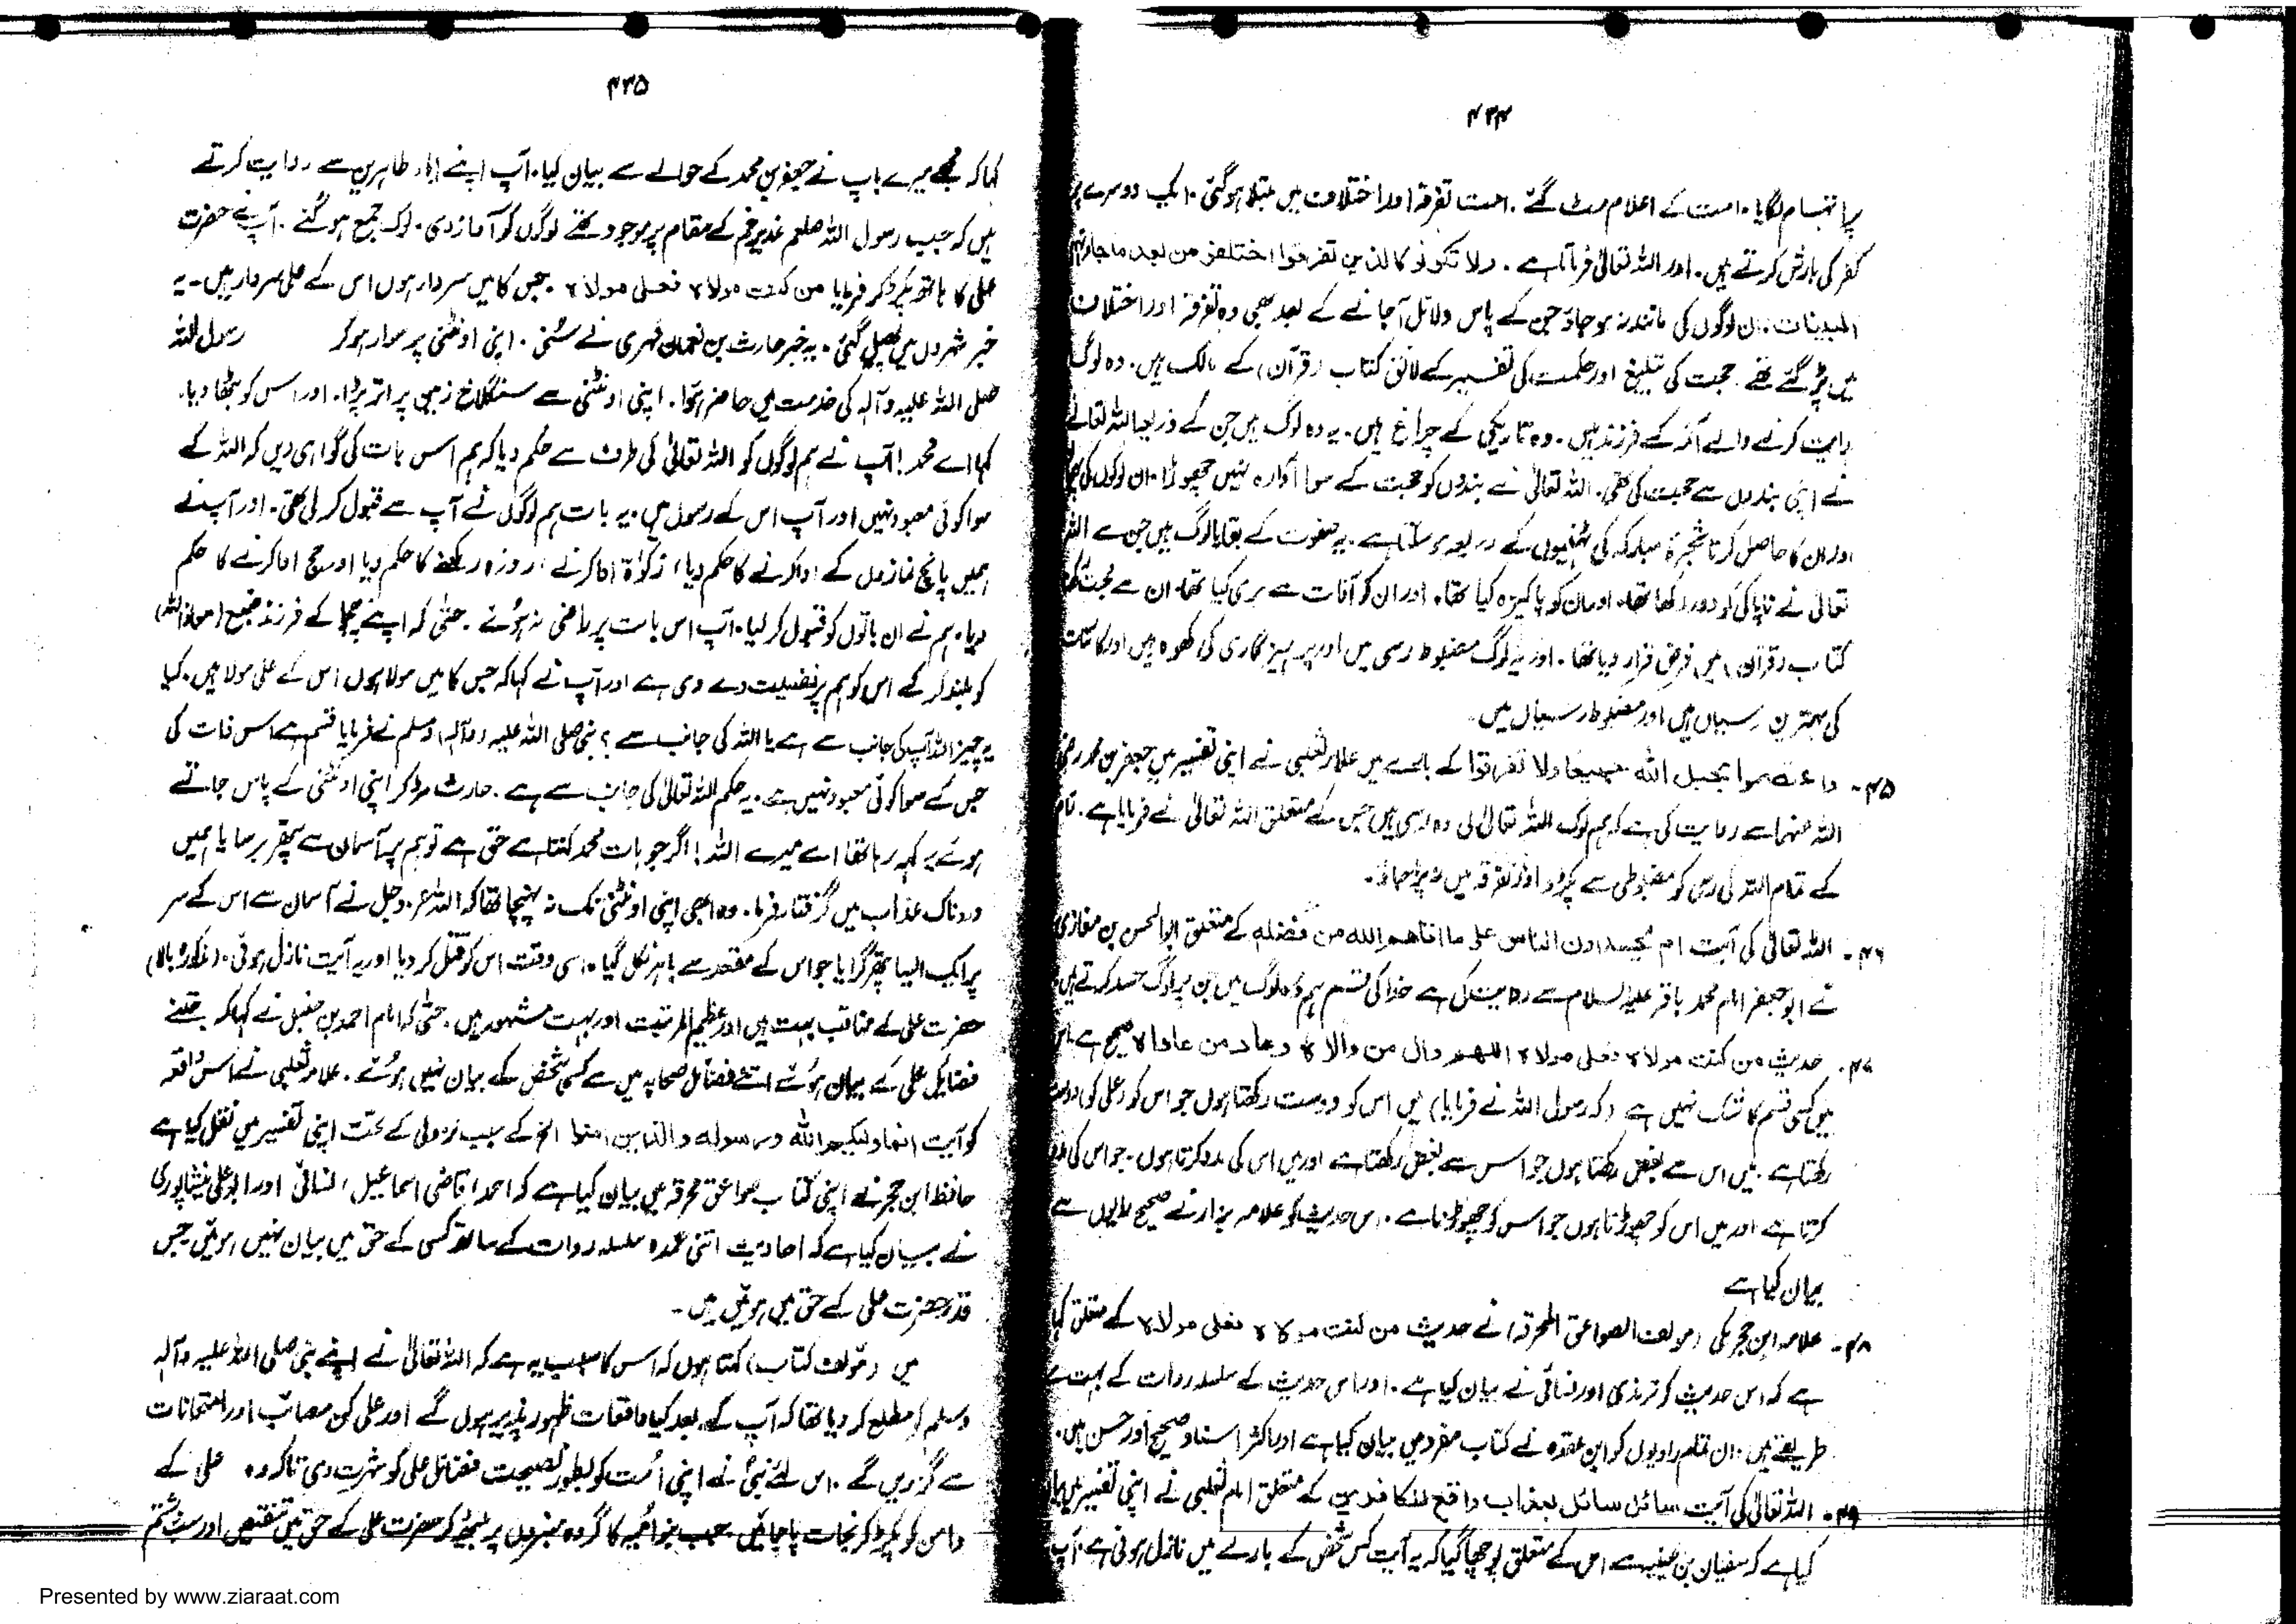 ۴۳۴
پر اتہام لگایا۔ امت کے اعلام مٹ گئے۔ امت تفرقہ اور اختلاف میں مبتلا ہوگئی۔ ایک دوسرے پر
کفر کی بارش کرتے ہیں۔ اور اللہ تعالیٰ فرماتا ہے۔ ولا تکونوا کالذین تفرقوا اختلفو من بعد ما جاءتہم
البینات، ان لوگوں کی مانند نہ ہوجاؤ جن کے پاس دلائل آجانے کے بعد بھی وہ تفرقہ اور اختلاف
میں پڑ گئے تھے۔ حجت کی تبلیغ اور حکمت کی تفسیر کے لائق کتاب (قرآن) کے مالک ہیں۔ وہ لوگ
ہدایت کرنے والے آئمہ کے فرزند ہیں۔ وہ تاریکی کے چراغ ہیں۔ یہ وہ لوگ ہیں جن کے ذریعہ اللہ تعالےٰ
نے اپنی بندوں سے حجبت کی تھی۔ اللہ تعالیٰ نے بندوں کو حجت کے سوا آوارہ نہیں چھوڑا۔ ان لوگوں کی
اور ان کا حاصل کرنا شجرۃ مبارکہ کی ٹہنیوں کے ذریعہ ہو سکتا ہے۔ یہ صفوت کے بقایا لوگ ہیں جن سے اللہ
تعالیٰ نے ناپاکی کو دور رکھا تھا۔ اور ان کو پاکیزہ کیا تھا۔ اور ان کو آفات سے بری کیا تھا۔ ان سے محبت کو
کتاب (قرآن) میں فرض قرار دیا تھا۔ اور یہ لوگ مضبوط رسی ہیں اور پرہیزگاری کی کھوہ ہیں اور کائنات
کی بہترین رسیاں ہیں اور مضبوط رسیاں ہیں۔
۴۵۔ واعتصموا بحبل اللہ جمیعا ولا تفرقوا کے بارے میں علامہ ثعلبی نے اپنی تفسیر میں جعفر بن محمد رضی
اللہ عنہما سے روایت کی ہے کہ ہم لوگ اللہ تعالیٰ کی وہ رسی ہیں جس کے متعلق اللہ تعالیٰ نے فرمایا ہے۔ تام
کے تمام اللہ کی رسی کو مضبوطی سے پکڑو اور تفرقہ میں نہ پڑ جاؤ۔
۴۶۔ اللہ تعالیٰ کی آیت ام یحسدون الناس علی ما اتاھم اللہ من فضلہ کے متعلق ابوالحسن بن مغازلی
نے ابو جعفر امام محمد باقر علیہ السلام سے روایت کی ہے خدا کی قسم ہم وہ لوگ ہیں جن پر لوگ حسد کرتے ہیں
۴۷۔ حدیث من کنت مولاہ فعلی مولاہ اللھم وال من والاہ وعاد من عاداہ صحیح ہے اس
میں کسی قسم کا شک نہیں ہے (کہ رسول اللہ نے فرمایا) میں اس کو دوست رکھتا ہوں جو اس کو (علی کو) دوست
رکھتا ہے۔ میں اس سے بغض رکھتا ہوں جو اس سے بغض رکھتا ہے اور میں اس کی مدد کرتا ہوں۔ جو اس کی مدد
کرتا ہے اور میں اس کو چھوڑتا ہوں جو اس کو چھوڑتا ہے۔ اس حدیث کو علامہ بزار نے صحیح راویوں سے
بیان کیا ہے
۴۸۔ علامہ ابن حجر مکی (مولف الصواعق المحرقہ) نے حدیث من کنت مولاہ فعلی مولاہ کے متعلق کہا
ہے کہ اس حدیث کو ترمذی اور نسائی نے بیان کیا ہے۔ اور اس حدیث کے سلسلہ روات کے بہت سے
طریقے ہیں۔ ان تمام راویوں کو ابن عقدہ نے کتاب مفرد میں بیان کیا ہے اور اکثر اسناد صحیح اور حسن ہیں۔
۴۹۔ اللہ تعالیٰ کی آیت سائل سائل بعذاب واقع للکافرین کے متعلق امام ثعلبی نے اپنی تفسیر میں بیان
کیا ہے کہ سفیان بن عیینہ سے اس کے متعلق پوچھا گیا کہ یہ آیت کس شخص کے بارے میں نازل ہوئی ہے۔ آپ
۴۳۵
کہا کہ مجھے میرے باپ نے جعفر بن محمد کے حوالے سے بیان کیا۔ آپ اپنے آباء طاہرین سے روایت کرتے
ہیں کہ جب رسول اللہ صلعم غدیر خم کے مقام پر موجود تھے لوگوں کو آواز دی۔ لوگ جمع ہوگئے۔ آپ نے حضرت
علی کا ہاتھ پکڑ کر فرمایا من کنت مولاہ فعلی مولاہ جس کا میں سردار ہوں اس کے علی سردار ہیں۔ یہ
خبر شہروں میں پھیل گئی۔ یہ خبر حارث بن نعمان فہری نے سُنی۔ اپنی اونٹنی پر سوار ہوکر رسول اللہ
صلی اللہ علیہ وآلہ کی خدمت میں حاضر ہوا۔ اپنی اونٹنی سے سنگلاخ زمین پر اتر پڑا۔ اور اس کو بٹھا دیا۔
کہا اے محمد! آپ نے ہم لوگوں کو اللہ تعالیٰ کی طرف سے حکم دیا کہ ہم اس بات کی گواہی دیں کہ اللہ کے
سوا کوئی معبود نہیں اور آپ اس کے رسول ہیں۔ یہ بات ہم لوگوں نے آپ سے قبول کرلی تھی۔ اور آپ نے
ہمیں پانچ نمازوں کے ادا کرنے کا حکم دیا، زکواۃ ادا کرنے، روزہ رکھنے کا حکم دیا اور حج ادا کرنے کا حکم
دیا۔ ہم نے ان باتوں کو قبول کر لیا۔ آپ اس بات پر راضی نہ ہوئے۔ حتٰی کہ اپنے چچا کے فرزند ضبع (معاذ اللہ)
کو بلند کر کے اس کو ہم پر فضیلت دے دی ہے اور آپ نے کہا کہ جس کا میں مولا ہوں اس کے علی مولا ہیں۔ کیا
یہ چیز اللہ آپ کی جانب سے ہے یا اللہ کی جانب سے؟ نبی صلی اللہ علیہ وآلہ وسلم نے فرمایا قسم ہے اس ذات کی
جس کے سوا کوئی معبود نہیں ہے۔ یہ حکم اللہ تعالیٰ کی جانب سے ہے۔ حارث مڑ کر اپنی اونٹنی کے پاس جاتے
ہوئے یہ کہہ رہا تھا اے میرے اللہ! اگر جو بات محمد کہتا ہے حق ہے تو ہم پر آسمان سے پتھر برسا یا ہمیں
دردناک عذاب میں گرفتار فرما۔ وہ ابھی اپنی اونٹنی تک نہ پہنچا تھا کہ اللہ عز و جل نے آسمان سے اس کے سر
پر ایک ایسا پتھر گرایا جو اس کے مقعد سے باہر نکل گیا۔ اسی وقت اس کو قتل کر دیا اور یہ آیت نازل ہوئی۔ (مذکورہ بالا)
حضرت علی کے مناقب بہت ہیں اور عظیم المرتبت اور بہت مشہور ہیں۔ حتٰی کہ امام احمد بن حنبل نے کہا کہ جتنے
فضائل علی کے بیان ہوئے اتنے فضائل صحابہ میں سے کسی شخص کے بیان نہیں ہوئے۔ علامہ ثعلبی نے اس واقعہ
کو آیت انما ولیکم اللہ ورسولہ والذین امنوا الخ کے سبب نزول کے تحت اپنی تفسیر میں نقل کیا ہے
حافظ ابن حجر نے اپنی کتاب صواعق محرقہ میں بیان کیا ہے کہ احمد، قاضی اسماعیل، نسائی اور ابو علی نیشاپوری
نے بیان کیا ہے کہ احادیث اتنی عمدہ سلسلہ روات کے ساتھ کسی کے حق میں بیان نہیں ہوئیں جس
قدر حضرت علی کے حق میں ہوئیں ہیں۔
میں (مؤلف کتاب) کہتا ہوں کہ اس کا سبب یہ ہے کہ اللہ تعالیٰ نے اپنے نبی صلی اللہ علیہ وآلہ
وسلم کو مطلع کر دیا تھا کہ آپ کے بعد کیا واقعات ظہور پذیر ہوں گے اور علی کن مصائب اور امتحانات
سے گزریں گے۔ اس لئے نبیؐ نے اپنی اُمت کو بطور نصیحت فضائل علی کو شہرت دی تاکہ وہ علی کے
دامن کو پکڑ کر نجات پا جائیں۔ جب بنو امیہ کا گروہ منبروں پر بیٹھ کر حضرت علی کے حق میں تنقیص اور سب شتم
Presented by www.ziaraat.com